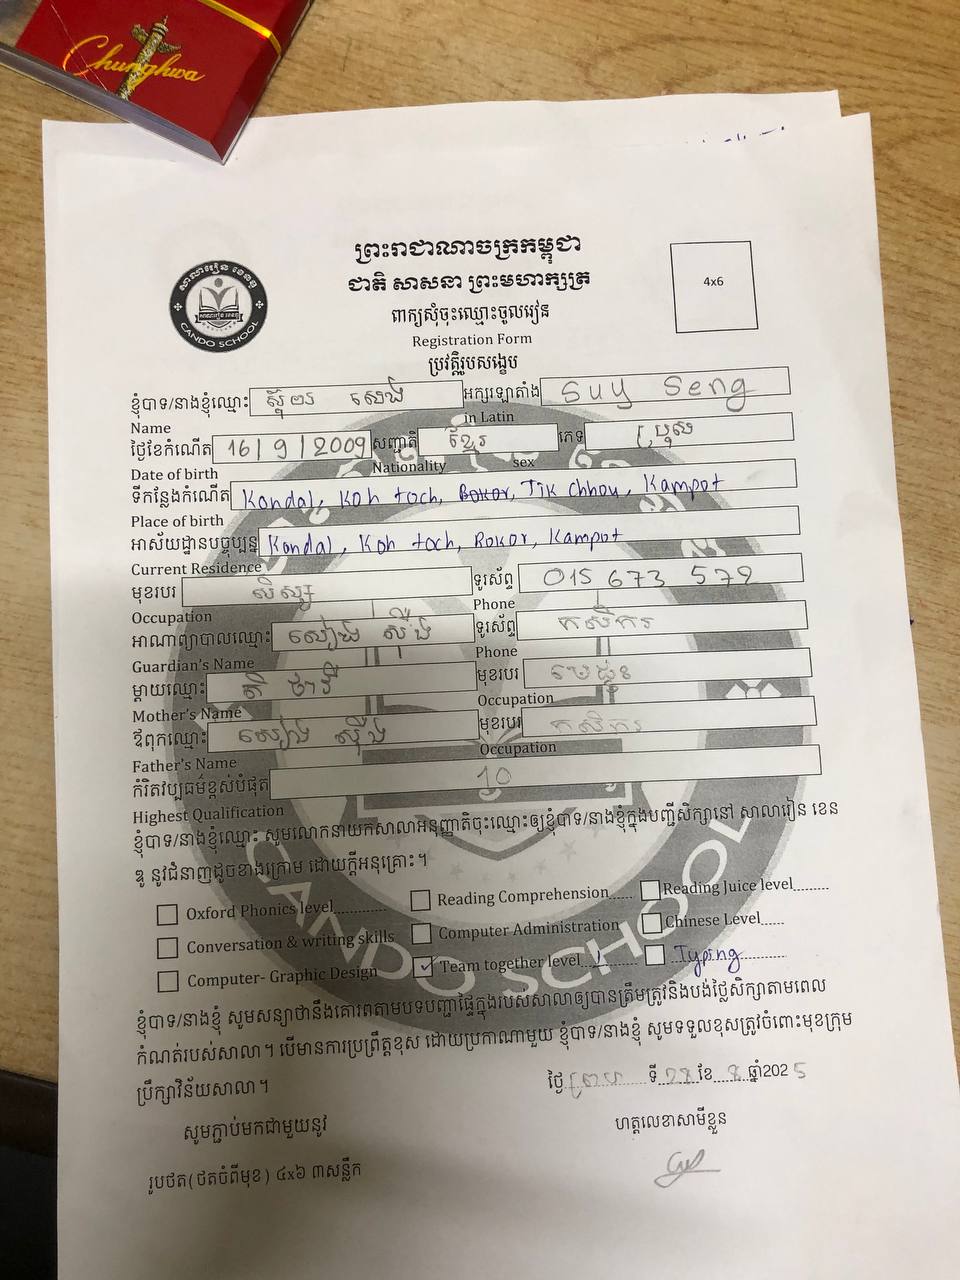 Chunghwa
ព្រះរាជាណាចក្រកម្ពុជា
ជាតិ សាសនា ព្រះមហាក្សត្រ
4x6
សាលារៀន ខេនឌូ
CANDO SCHOOL
ពាក្យសុំចុះឈ្មោះចូលរៀន
Registration Form
ប្រវត្តិរូបសង្ខេប
ខ្ញុំបាទ/នាងខ្ញុំឈ្មោះ សេង អក្សរឡាតាំង Suy Seng
Name in Latin
ថ្ងៃខែកំណើត 16/9/2009 សញ្ជាតិ ខ្មែរ ភេទ ប្រុស
Date of birth Nationality sex
ទីកន្លែងកំណើត Kandal, Koh toch, Bokor, Tik Chhou, Kampot
Place of birth
អាស័យដ្ឋានបច្ចុប្បន្ន Kandal, Koh toch, Bokor, Kampot
Current Residence
មុខរបរ សិស្ស ទូរស័ព្ទ 015 673 579
Occupation Phone
អាណាព្យាបាលឈ្មោះ សៀង ស៊ីង ទូរស័ព្ទ កសិករ
Guardian's Name Phone
ម្តាយឈ្មោះ មុខរបរ មេផ្ទះ
Mother's Name Occupation
ឪពុកឈ្មោះ សៀង ស៊ីង មុខរបរ កសិករ
Father's Name Occupation
កំរិតវប្បធម៌ខ្ពស់បំផុត 10
Highest Qualification
ខ្ញុំបាទ/នាងខ្ញុំឈ្មោះ សូមលោកនាយកសាលាអនុញ្ញាតិចុះឈ្មោះឲ្យខ្ញុំបាទ/នាងខ្ញុំក្នុងបញ្ជីសិក្សានៅ សាលារៀន ខេន
ឌូ នូវជំនាញដូចខាងក្រោម ដោយក្តីអនុគ្រោះ។
Oxford Phonics level............ Reading Comprehension...... Reading Juice level.........
Conversation & writing skills Computer Administration Chinese Level......
Computer- Graphic Design ✓ Team together level...1...... Typing
ខ្ញុំបាទ/នាងខ្ញុំ សូមសន្យាថានឹងគោរពតាមបទបញ្ជាផ្ទៃក្នុងរបស់សាលាឲ្យបានត្រឹមត្រូវនិងបង់ថ្លៃសិក្សាតាមពេល
កំណត់របស់សាលា។ បើមានការប្រព្រឹត្តខុស ដោយប្រកាណាមួយ ខ្ញុំបាទ/នាងខ្ញុំ សូមទទួលខុសត្រូវចំពោះមុខក្រុម
ប្រឹក្សាវិន័យសាលា។
ថ្ងៃ ព្រហ ទី 28 ខែ 8 ឆ្នាំ2025
សូមភ្ជាប់មកជាមួយនូវ ហត្ថលេខាសាមីខ្លួន
រូបថត(ថតចំពីមុខ) ៤x៦ ៣សន្លឹក
CANDO SCHOOL